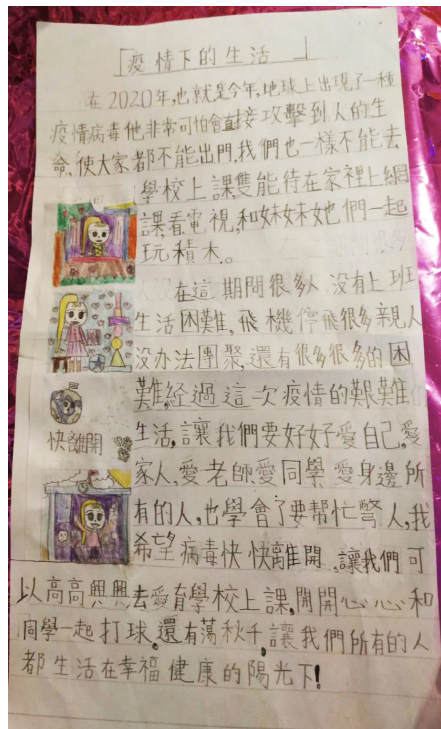 「疫情下的生活」
在2020年,也就是今年,地球上出現了一種
疫情病毒他非常可怕會直接攻擊到人的生
命,使大家都不能出門,我們也一樣不能去
學校上課,雙能待在家裡上網
課,看電視,和妹妹她們一起
玩積木。
在這期間很多人沒有上班
生活困難,飛機停飛很多親人
没办法團聚,還有很多很多的困
難,經過這一次疫情的艱難
生活,讓我們要好好愛自己,愛
快離開
家人,愛老師,愛同學愛身邊所
有的人,也學會了要幫忙警人,我
希望病毒快快離開,讓我們可
以高高興興去愛育學校上課,開開心心和
同學一起打球,還有蕩秋千,讓我們所有的人
都生活在幸福健康的陽光下!